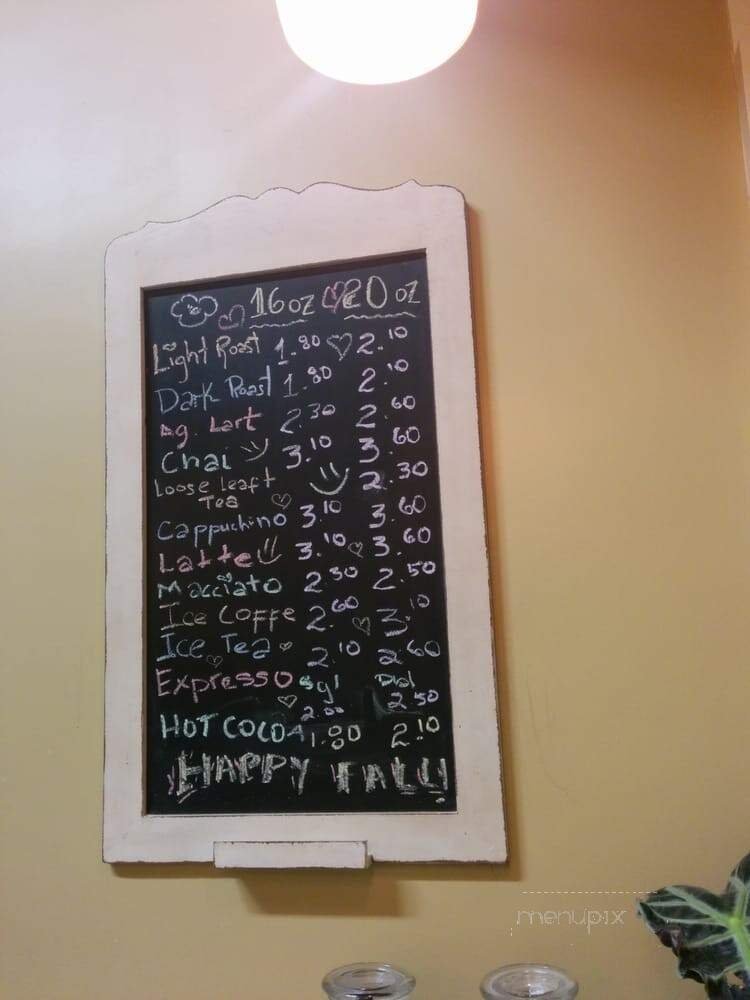 16 oz 20 oz
Light Roast 1.80 2.10
Dark Roast 1.80 2.10
Ag. Lart 2.30 2.60
Chai 3.10 3.60
Loose Leaft 2.30
Tea
Cappuchino 3.10 3.60
Latte 3.10 3.60
Macciato 2.30 2.50
Ice Coffe 2.60 3.10
Ice Tea 2.10 2.60
Expresso sgl Dbl
2.00 2.50
HOT COCOA 1.80 2.10
HAPPY FALL!
menupix